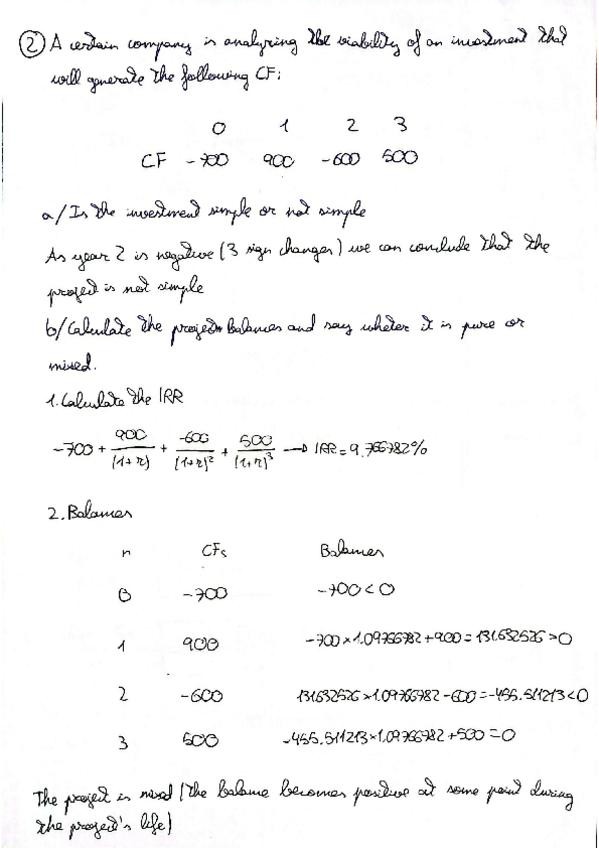 2 A certain company is analyzing the viability of an investment that
will generate the following CF:
0 1 2 3
CF -700 900 -600 500
a/ Is the investment simple or not simple
As year 2 is negative (3 sign changes) we can conclude that the
project is not simple
b/ Calculate the project Balances and say wheter it is pure or
mixed.
1. Calculate the IRR
-700 + 900/(1+r) + -600/(1+r)² + 500/(1+r)³ → IRR = 9.766782%
2. Balances
n CFs Balances
0 -700 -700<0
1 900 -700×1.09766782+900=131.632526>0
2 -600 131.632526×1.09766782-600=-455.511213<0
3 500 -455.511213×1.09766782+500=0
The project is mixed (the balance becomes positive at some point during
the project's life)